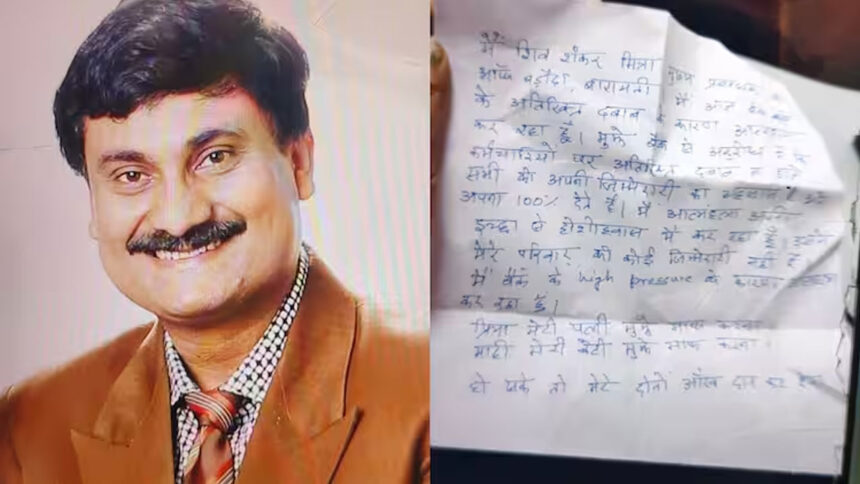 मैं शिव शंकर मित्रा मुख्य प्रबंधक
ऑफ बड़ौदा, बारामती में आज बैंक
के अतिरिक्त दबाव के कारण आत्महत्या
कर रहा हूँ। मुझे बैंक से अनुरोध है कि
कर्मचारियों पर अतिरिक्त दबाव न
सभी को अपनी जिम्मेदारी का एहसास है
अपना 100% देते हैं। मैं आत्महत्या अपनी
इच्छा से होशोहवास में कर रहा हूँ। इसमें
मेरे परिवार की कोई जिम्मेदारी नहीं है
मैं बैंक के high pressure के कारण आत्महत्या
कर रहा हूँ।
प्रिया मेरी पत्नी मुझे माफ करना
माही मेरी बेटी मुझे माफ करना।
हो सके तो मेरे दोनों आँख दान कर देना